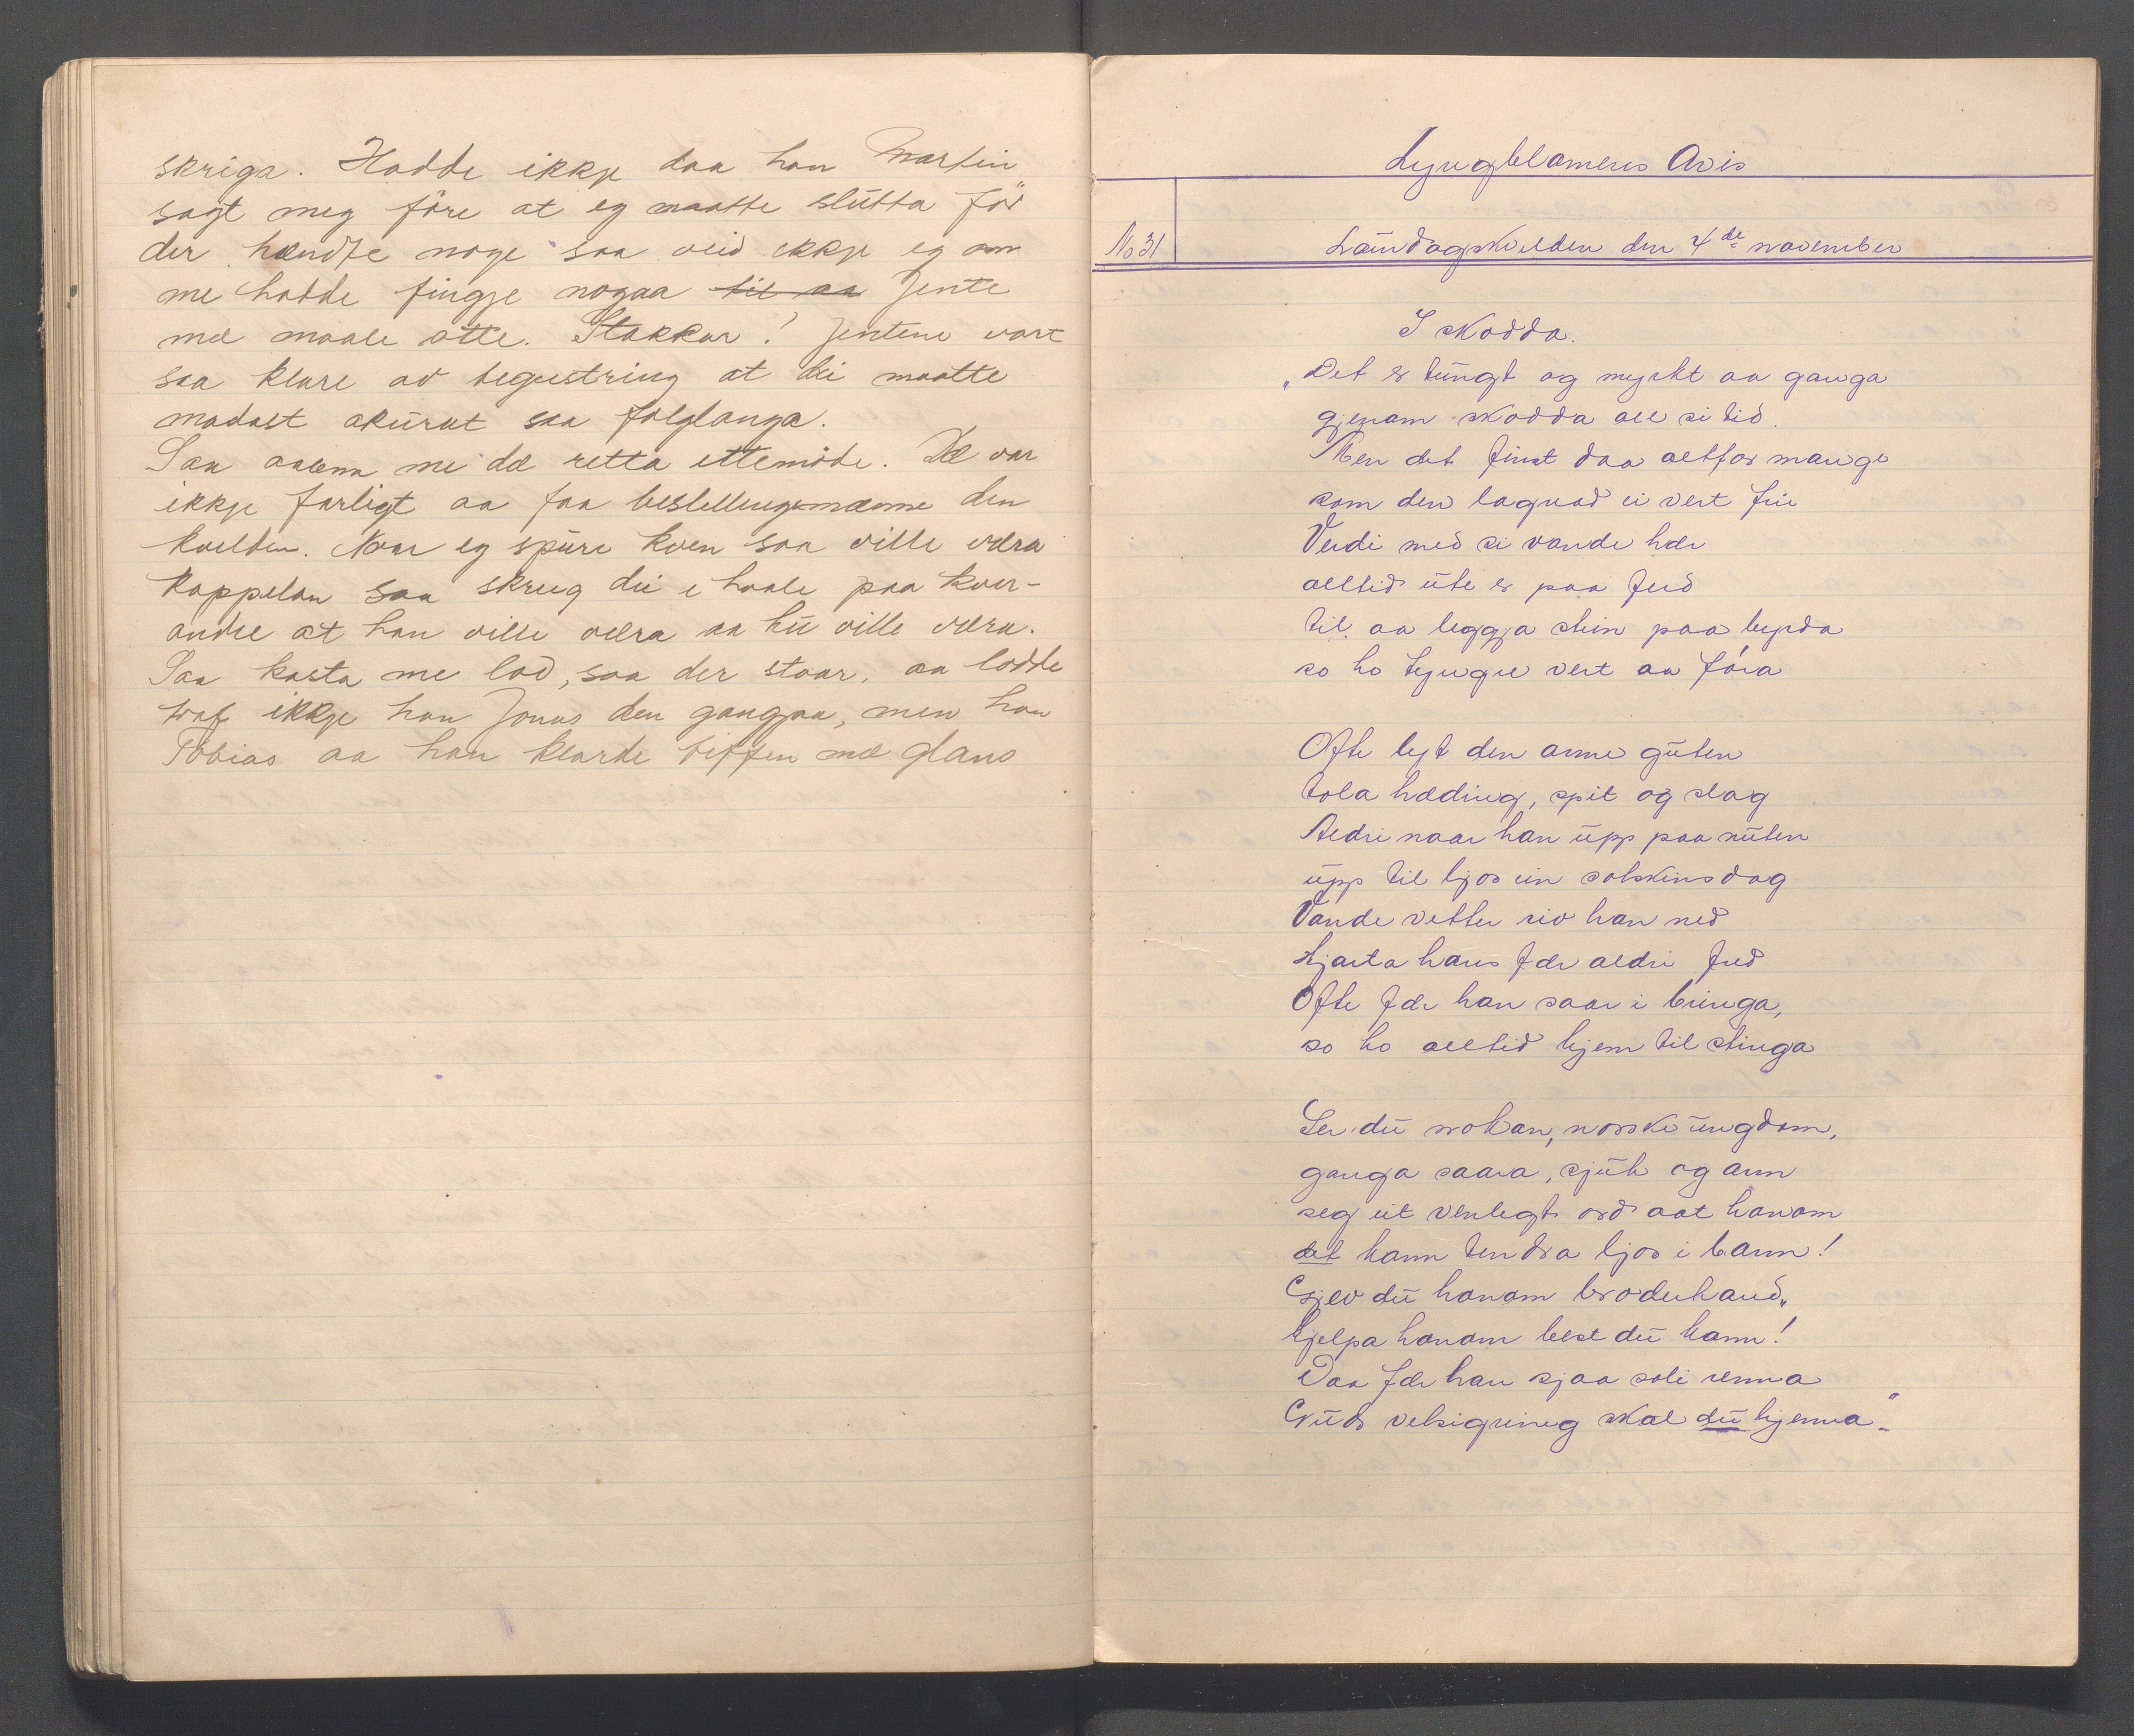 skriga. Hadde ikkje daa han Martin
sagt meg före at eg maatte slútta för
der hændte noge saa veid ikkje eg om
me hadde fingje nogaa til aa Jente
mæ maale otte. Stakkar! Jentene vart
saa klare av begeistring at dei maatte
madast akúrat saa folglanga.
Saa me dæ retta ettemöde. Dæ var
ikkje farligt aa faa bestellingsmænne den
kvelden. Naar eg spúre kven saa ville væra
kappelan saa skreig dei i haale paa kver-
andre at han ville væra aa hú ville væra.
Saa kasta me lod, saa der staar, aa lodde
traf ikkje han Jonas den gangjaa, men han
Tobias aa han klarde biffen mæ glans
Lyngblomens Avis
No 31
Laúrdagskvelden den 4de november
I Skodda.
„Det er túngt og myrkt aa ganga
gjenom skodda all si tid.
Men det finst daa altfor mange
som den lagnad ei vert frie
Verdi med si vande hær
alltid úte er paa ferd
til aa leggja stein paa byrda
so ho tyngre vert aa föra

Ofte lyt den arme gúten
tola hæding, spit og slag
Aldri naar han úpp paa núten
úpp til ljos ein solskinsdag
Vonde vetter riv han ned
hjarta hans fær aldri fred
Ofte fær han saar i bringa,
so ho alltid kjem til stinga

Ser dú nokan, norske úngdom,
ganga saara, sjúk og arm
seg eit venlegt ord aat honom
det kann tendra ljos i barm!
Gjev dú honom broderhand„
hjelpa honom best dú kann!
Daa fær han sjaa soli renna
Gúds velsigning skal dú kjenna".